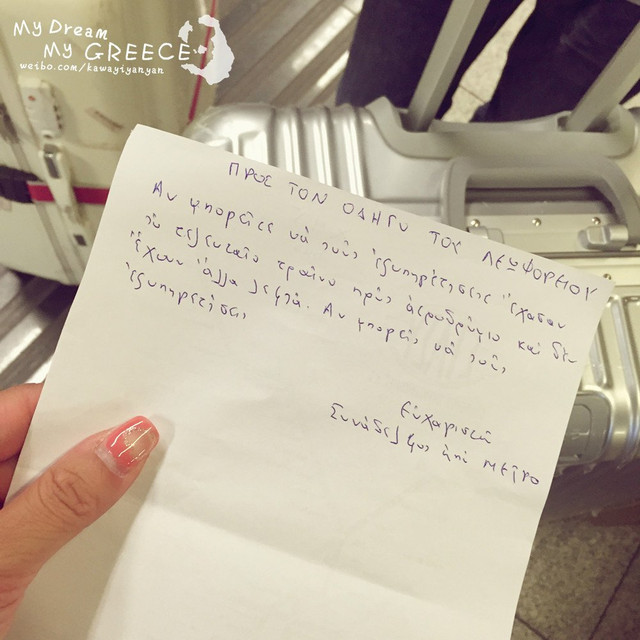 My Dream
My GREECE
weibo.com/kawayiyanyan
ΠΡΟΣ ΤΟΝ ΟΔΗΓΟ ΤΟΥ ΛΕΩΦΟΡΕΙΟΥ
Αν μπορείτε νὰ τοὺς ἐξυπηρέτησεις ἔχασαν
τὸ τελευταῖο τραῖνο πρὸς ἀεροδρόμιο καὶ δὲν
ἔχουν ἄλλα λεφτά. Αν μπορεῖς νὰ τοὺς
ἐξυπηρετήσεις
Εὐχαριστῶ
Συνάδελφος ἀπὸ ΜΕΤΡΟ